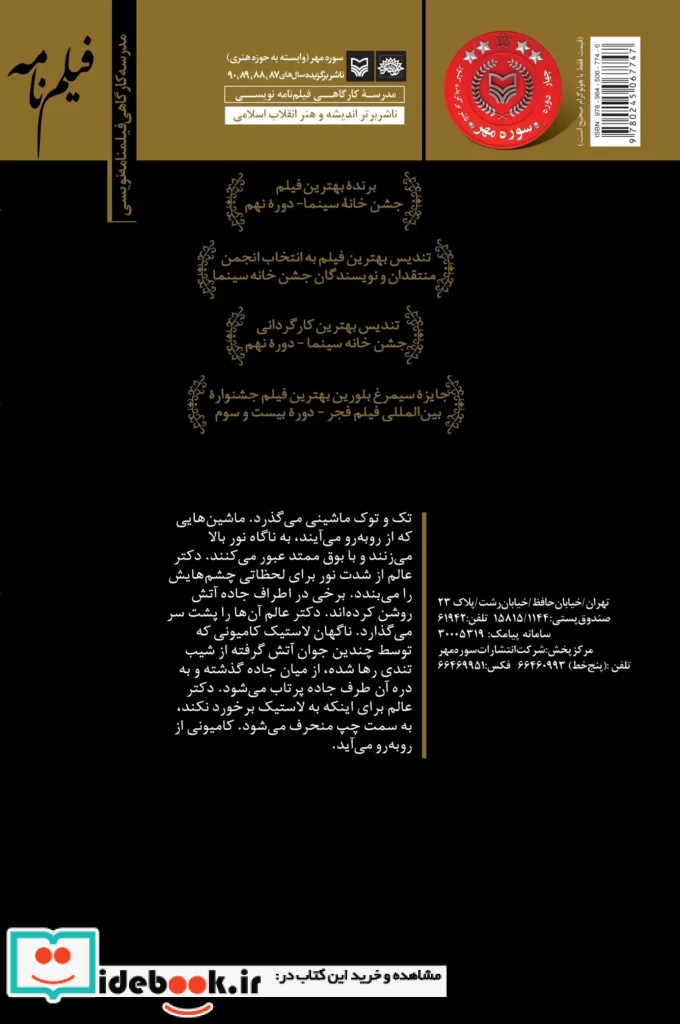 فیلم نامه
مدرسه کارگاهی فیلمنامه‌نویسی
سوره مهر (وابسته به حوزه هنری)
ناشر برگزیده سال‌های ۸۷، ۸۸، ۸۹، ۹۰
مدرسهٔ کارگاهی فیلم‌نامه نویسی
ناشر برتر اندیشه و هنر انقلاب اسلامی
چهار دوره
سوره مهر
(قیمت فقط با هولوگرام صحیح است)
ISBN: 978-964-506-774-6
9780245067747
برندهٔ بهترین فیلم
جشن خانهٔ سینما- دورهٔ نهم
تندیس بهترین فیلم به انتخاب انجمن
منتقدان و نویسندگان جشن خانه سینما
تندیس بهترین کارگردانی
جشن خانه سینما - دورهٔ نهم
جایزهٔ سیمرغ بلورین بهترین فیلم جشنوارهٔ
بین‌المللی فیلم فجر - دورهٔ بیست و سوم
تک و توک ماشینی می‌گذرد. ماشین‌هایی
که از روبه‌رو می‌آیند، به ناگاه نور بالا
می‌زنند و با بوق ممتد عبور می‌کنند. دکتر
عالم از شدت نور برای لحظاتی چشم‌هایش
را می‌بندد. برخی در اطراف جاده آتش
روشن کرده‌اند. دکتر عالم آن‌ها را پشت سر
می‌گذارد. ناگهان لاستیک کامیونی که
توسط چندین جوان آتش گرفته از شیب
تندی رها شده، از میان جاده گذشته و به
دره آن طرف جاده پرتاب می‌شود. دکتر
عالم برای اینکه به لاستیک برخورد نکند،
به سمت چپ منحرف می‌شود. کامیونی از
روبه‌رو می‌آید.
تهران/خیابان حافظ/خیابان رشت/پلاک ۲۳
صندوق پستی:۱۵۸۱۵/۱۱۴۴ تلفن:۶۱۹۴۲
سامانه پیامک: ۳۰۰۰۵۳۱۹
مرکز پخش:شرکت انتشارات سوره مهر
تلفن :(پنج خط) ۶۶۴۶۰۹۹۳ فکس:۶۶۴۶۹۹۵۱
مشاهده و خرید این کتاب در:
idebook.ir